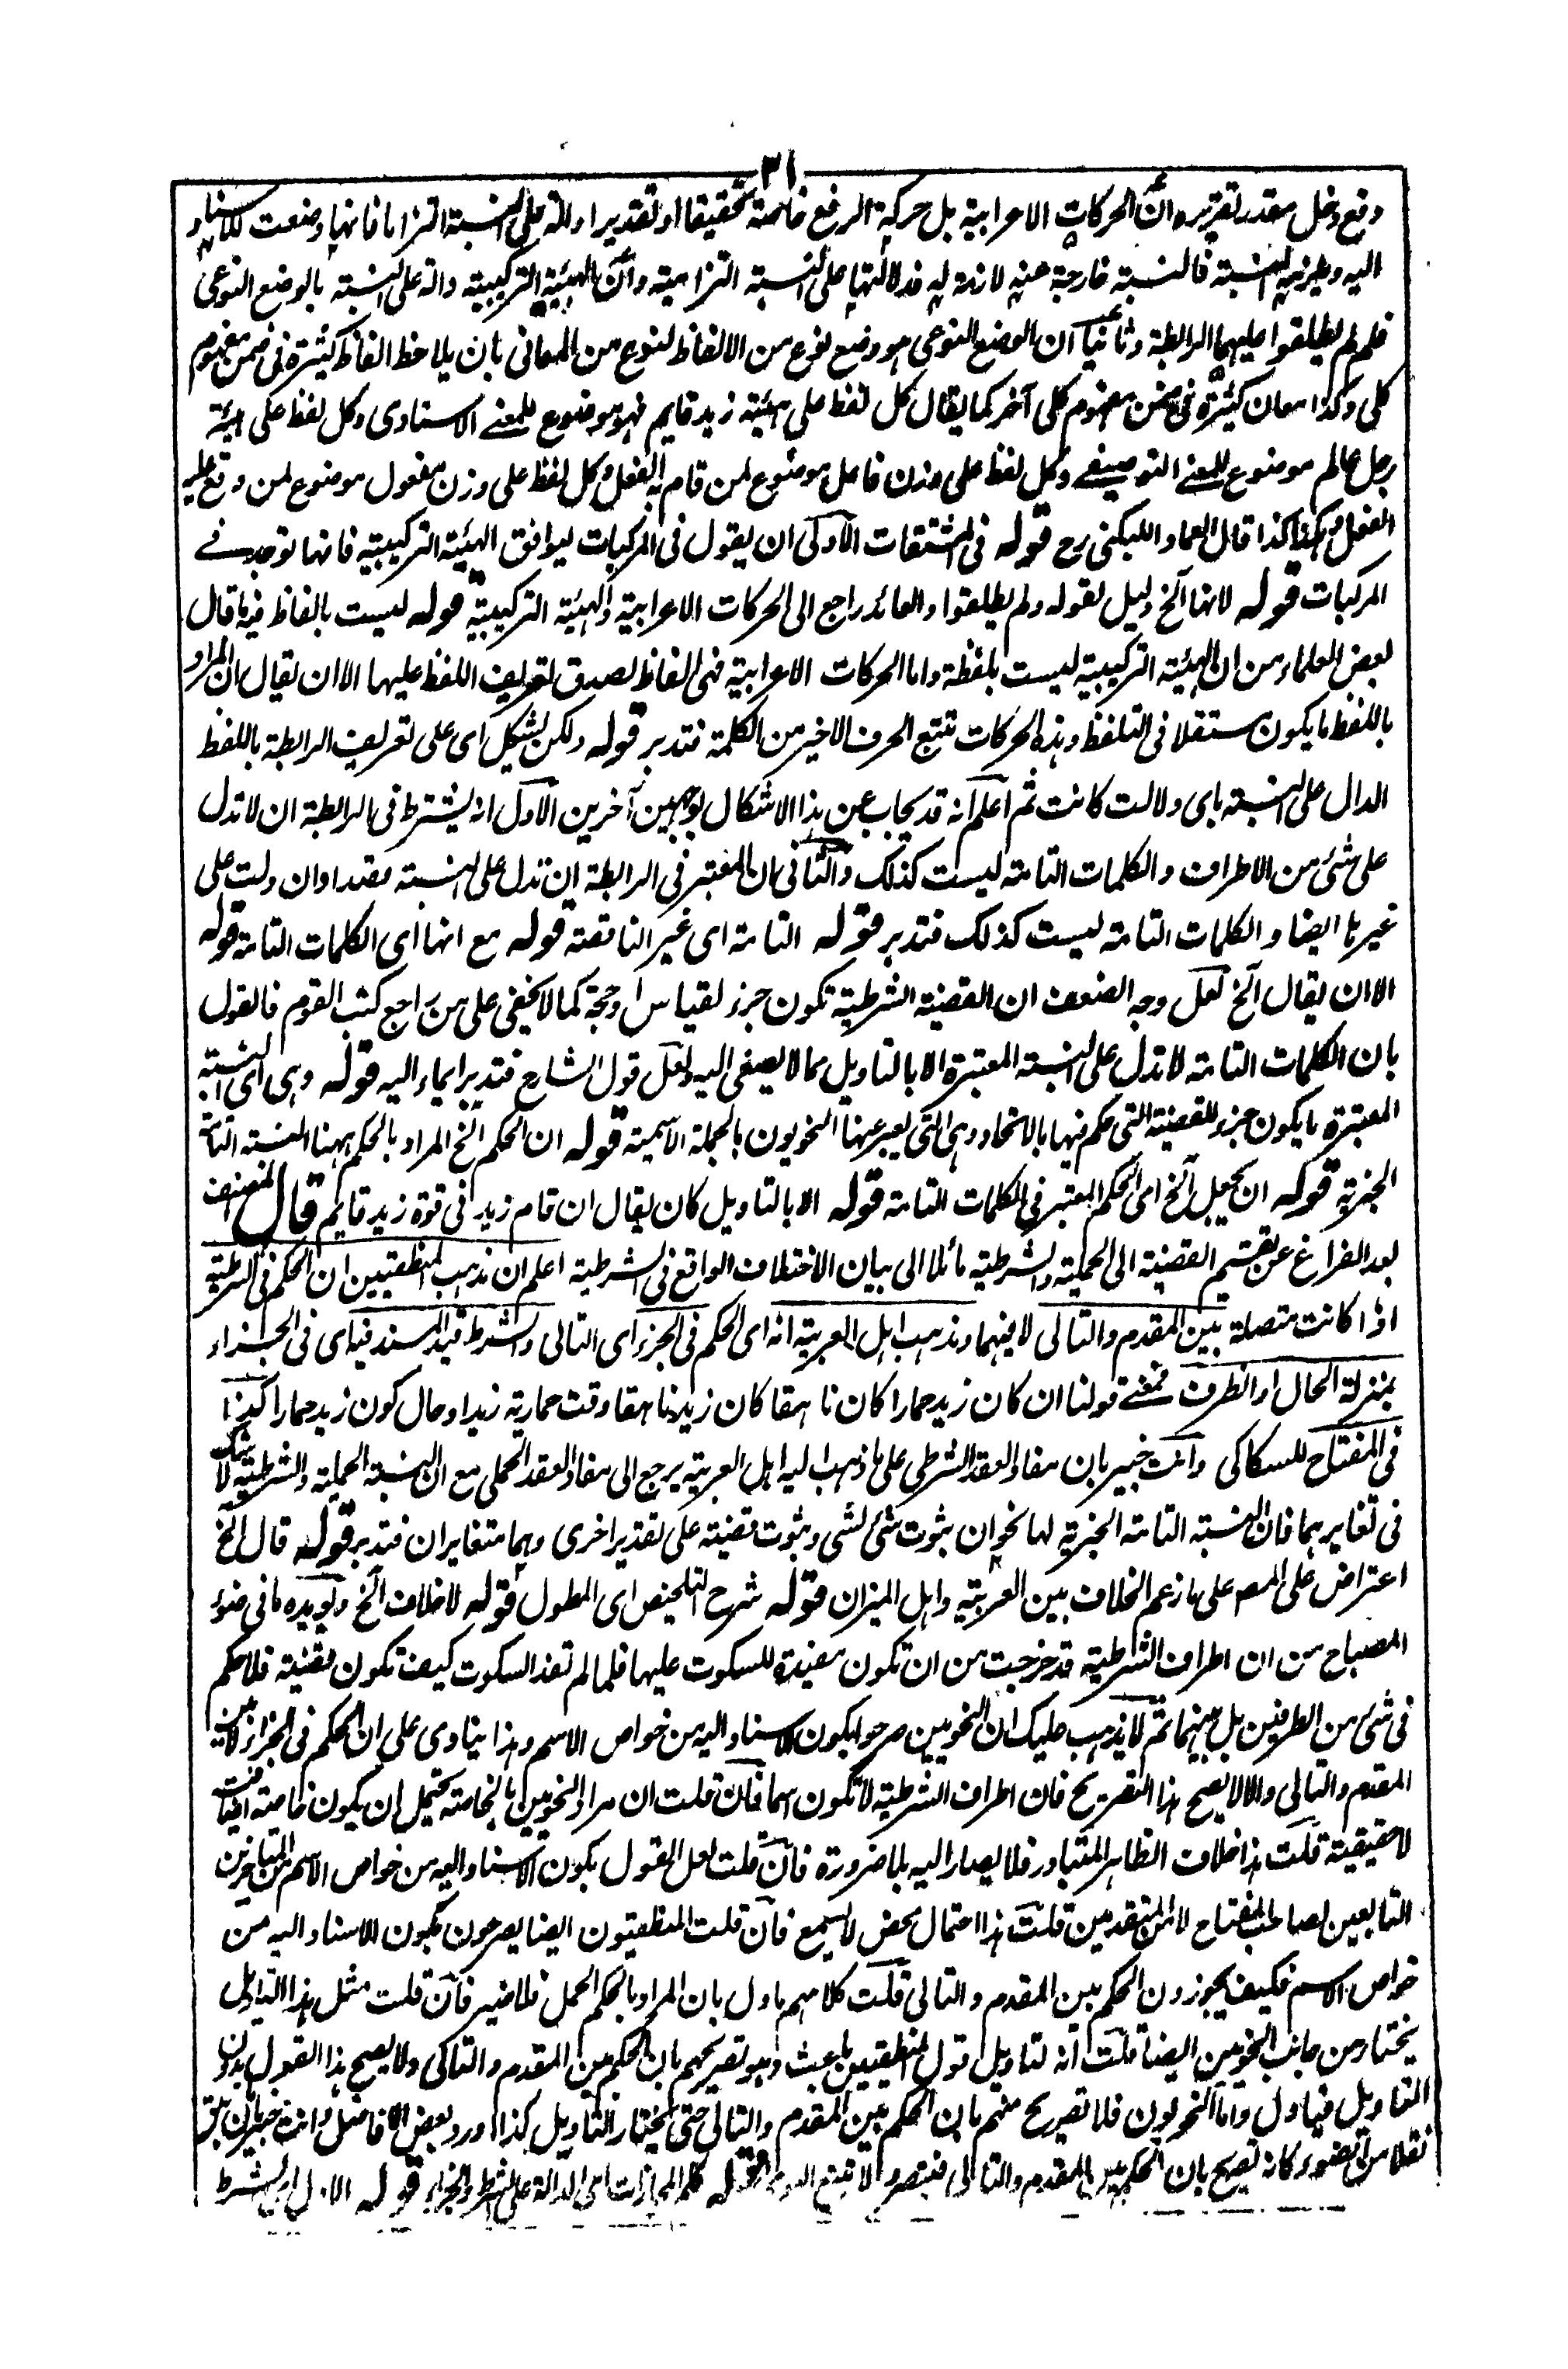 ٣١
دفع دخل مقدر تقريره ان الحركات الاعرابية بل حركة الرفع خاصة تحقيقا او تقديرا دالة على النسبة التزاما فانها وضعت للاسناد
اليه وطرفيه النسبة فالنسبة خارجة عنه لازمة له فدلالتها على النسبة التزامية وان الهيئة التركيبية دالة على النسبة بالوضع النوعي
فلم لم يطلقوا عليهما الرابطة وثانيا ان الوضع النوعي هو وضع نوع من الالفاظ لنوع من المعاني بان يلاحظ الفاظ كثيرة في ضمن مفهوم
كلي وكذا معان كثيرة في ضمن مفهوم كلي آخر كما يقال كل لفظ على هيئة زيد قايم فهو موضوع للمعنے الاسنادى وكل لفظ على هيئة
رجل عالم موضوع للمعنے التوصيفے وكل لفظ على وزن فاعل موضوع لمن قام به الفعل وكل لفظ على وزن مفعول موضوع لمن وقع عليه
الفعل وهكذا كذا قال العماد اللبكنى رح قوله في المشتقات الاولى ان يقول في المركبات ليوافق الهيئة التركيبية فانها توجد فے
المركبات قوله لانها آلخ دليل لقوله ولم يطلقوا والعائد راجع الى الحركات الاعرابية والهيئة التركيبية قوله ليست بالفاظ فيه ما قال
بعض العلماء من ان الهيئة التركيبية ليست بلفظة واما الحركات الاعرابية فهى الفاظ لصدق تعريف اللفظ عليها الا ان يقال ان المراد
باللفظ ما يكون مستقلا في التلفظ وهذه الحركات تتبع الحرف الاخير من الكلمة فتدبر قوله ولكن يشكل اى على تعريف الرابطة باللفظ
الدال على النسبة باى دلالت كانت ثم اعلم انه قد يجاب عن هذا الاشكال بوجهين آخرين الاول انه يشترط في الرابطة ان لا تدل
على شئ من الاطراف والكلمات التامة ليست كذلك والثاني ان المعتبر في الرابطة ان تدل على النسبة مقصدا وان دلت على
غيرها ايضا والكلمات التامة ليست كذلك فتدبر قوله التامة اى غير الناقصة قوله مع انها اى الكلمات التامة قوله
الا ان يقال آلخ لعل وجه الضعف ان القضية الشرطية تكون جزء لقياس او حجة كما لا يخفى على من راجع كتب القوم فالقول
بان الكلمات التامة لا تدل على النسبة المعتبرة الا بالتاويل مما لا يصغى اليه ولعل قول الشارح فتدبر ايماء اليه قوله وهى اى النسبة
المعتبرة ما يكون جزء للقضية التي حكم فيها بالاتحاد وهى التي يعبر عنها النحويون بالجملة الاسمية قوله ان الحكم آلخ المراد بالحكم ههنا النسبة التامة
الخبرية قوله ان يجعل آلخ اى الحكم المعتبر في الكلمات التامة قوله الا بالتاويل كان يقال ان قام زيد في قوة زيد قايم قال المصنف
بعد الفراغ عن تقسيم القضية الى الحملية والشرطية مائلا الى بيان الاختلاف الواقع في الشرطية اعلم ان مذهب المنطقيين ان الحكم في الشرطية
اذا كانت متصلة بين المقدم والتالى لا فيهما ومذهب اهل العربية انه اى الحكم في الجزء اى التالى والشرط قيد المسند فيه اى في الجزاء
بمنزلة الحال او الظرف فمعنے قولنا ان كان زيد حمارا كان ناهقا كان زيد ناهقا وقت حمارية زيد او حال كون زيد حمارا كذا
في المفتاح للسكاكى وانت خبير بان مفاد العقد الشرطى على ما ذهب اليه اهل العربية يرجع الى مفاد العقد الحملى مع ان النسبة الحملية والشرطية لا شك
في تغايرهما فان النسبة التامة الخبرية لها نحوان ثبوت شئ لشئ وثبوت قضية على تقدير اخرى وهما متغايران فتدبر قوله قال آلخ
اعتراض على المصر على ما زعم الخلاف بين العربية واهل الميزان قوله شرح التلخيص اى المطول قوله لا خلاف آلخ ويؤيده ما في ضوء
المصباح من ان اطراف الشرطية قد خرجت من ان تكون مفيدة للسكوت عليها فلما لم تفد السكوت كيف تكون قضية فلا حكم
في شئ من الطرفين بل بينهما ثم لا يذهب عليك ان النحويين صرحوا بكون الاسناد اليه من خواص الاسم وهذا ينادى على ان الحكم في الجزاء لا بين
المقدم والتالى والا لا يصح هذا التصريح فان اطراف الشرطية لا تكون اسما فان قلت ان مراد النحويين بالخاصة يحتمل ان يكون خاصة اضافية
لا حقيقية قلت هذا خلاف الظاهر المتبادر فلا يصار اليه بلا ضرورة فان قلت لعل القول بكون الاسناد اليه من خواص الاسم من المتاخرين
التابعين لصاحب المفتاح لا من المتقدمين قلت هذا احتمال محض لا يسمع فان قلت المنطقيون ايضا يصرحون بكون الاسناد اليه من
خواص الاسم فكيف يجوزون الحكم بين المقدم والتالى قلت كلامهم ماول بان المراد بالحكم الحمل فلا ضير فان قلت مثل هذا التاويل
يختار من جانب النحويين ايضا قلت انه لتاويل قول المنطقيين باعث وهو تصريحهم بان الحكم بين المقدم والتالى ولا يصح هذا القول بدون
التاويل فياول واما النحويون فلا تصريح منهم بان الحكم بين المقدم والتالى حتى يختار التاويل كذا اورد بعض الافاضل وانت خبير بان ما سبق
نقلا من الضوء كانه تصريح بان الحكم بين المقدم والتالى فتبصر ولا تتبع الهوى قوله كلم المجازات اى الدالة على الشرط والجزاء قوله الاول اى الشرط